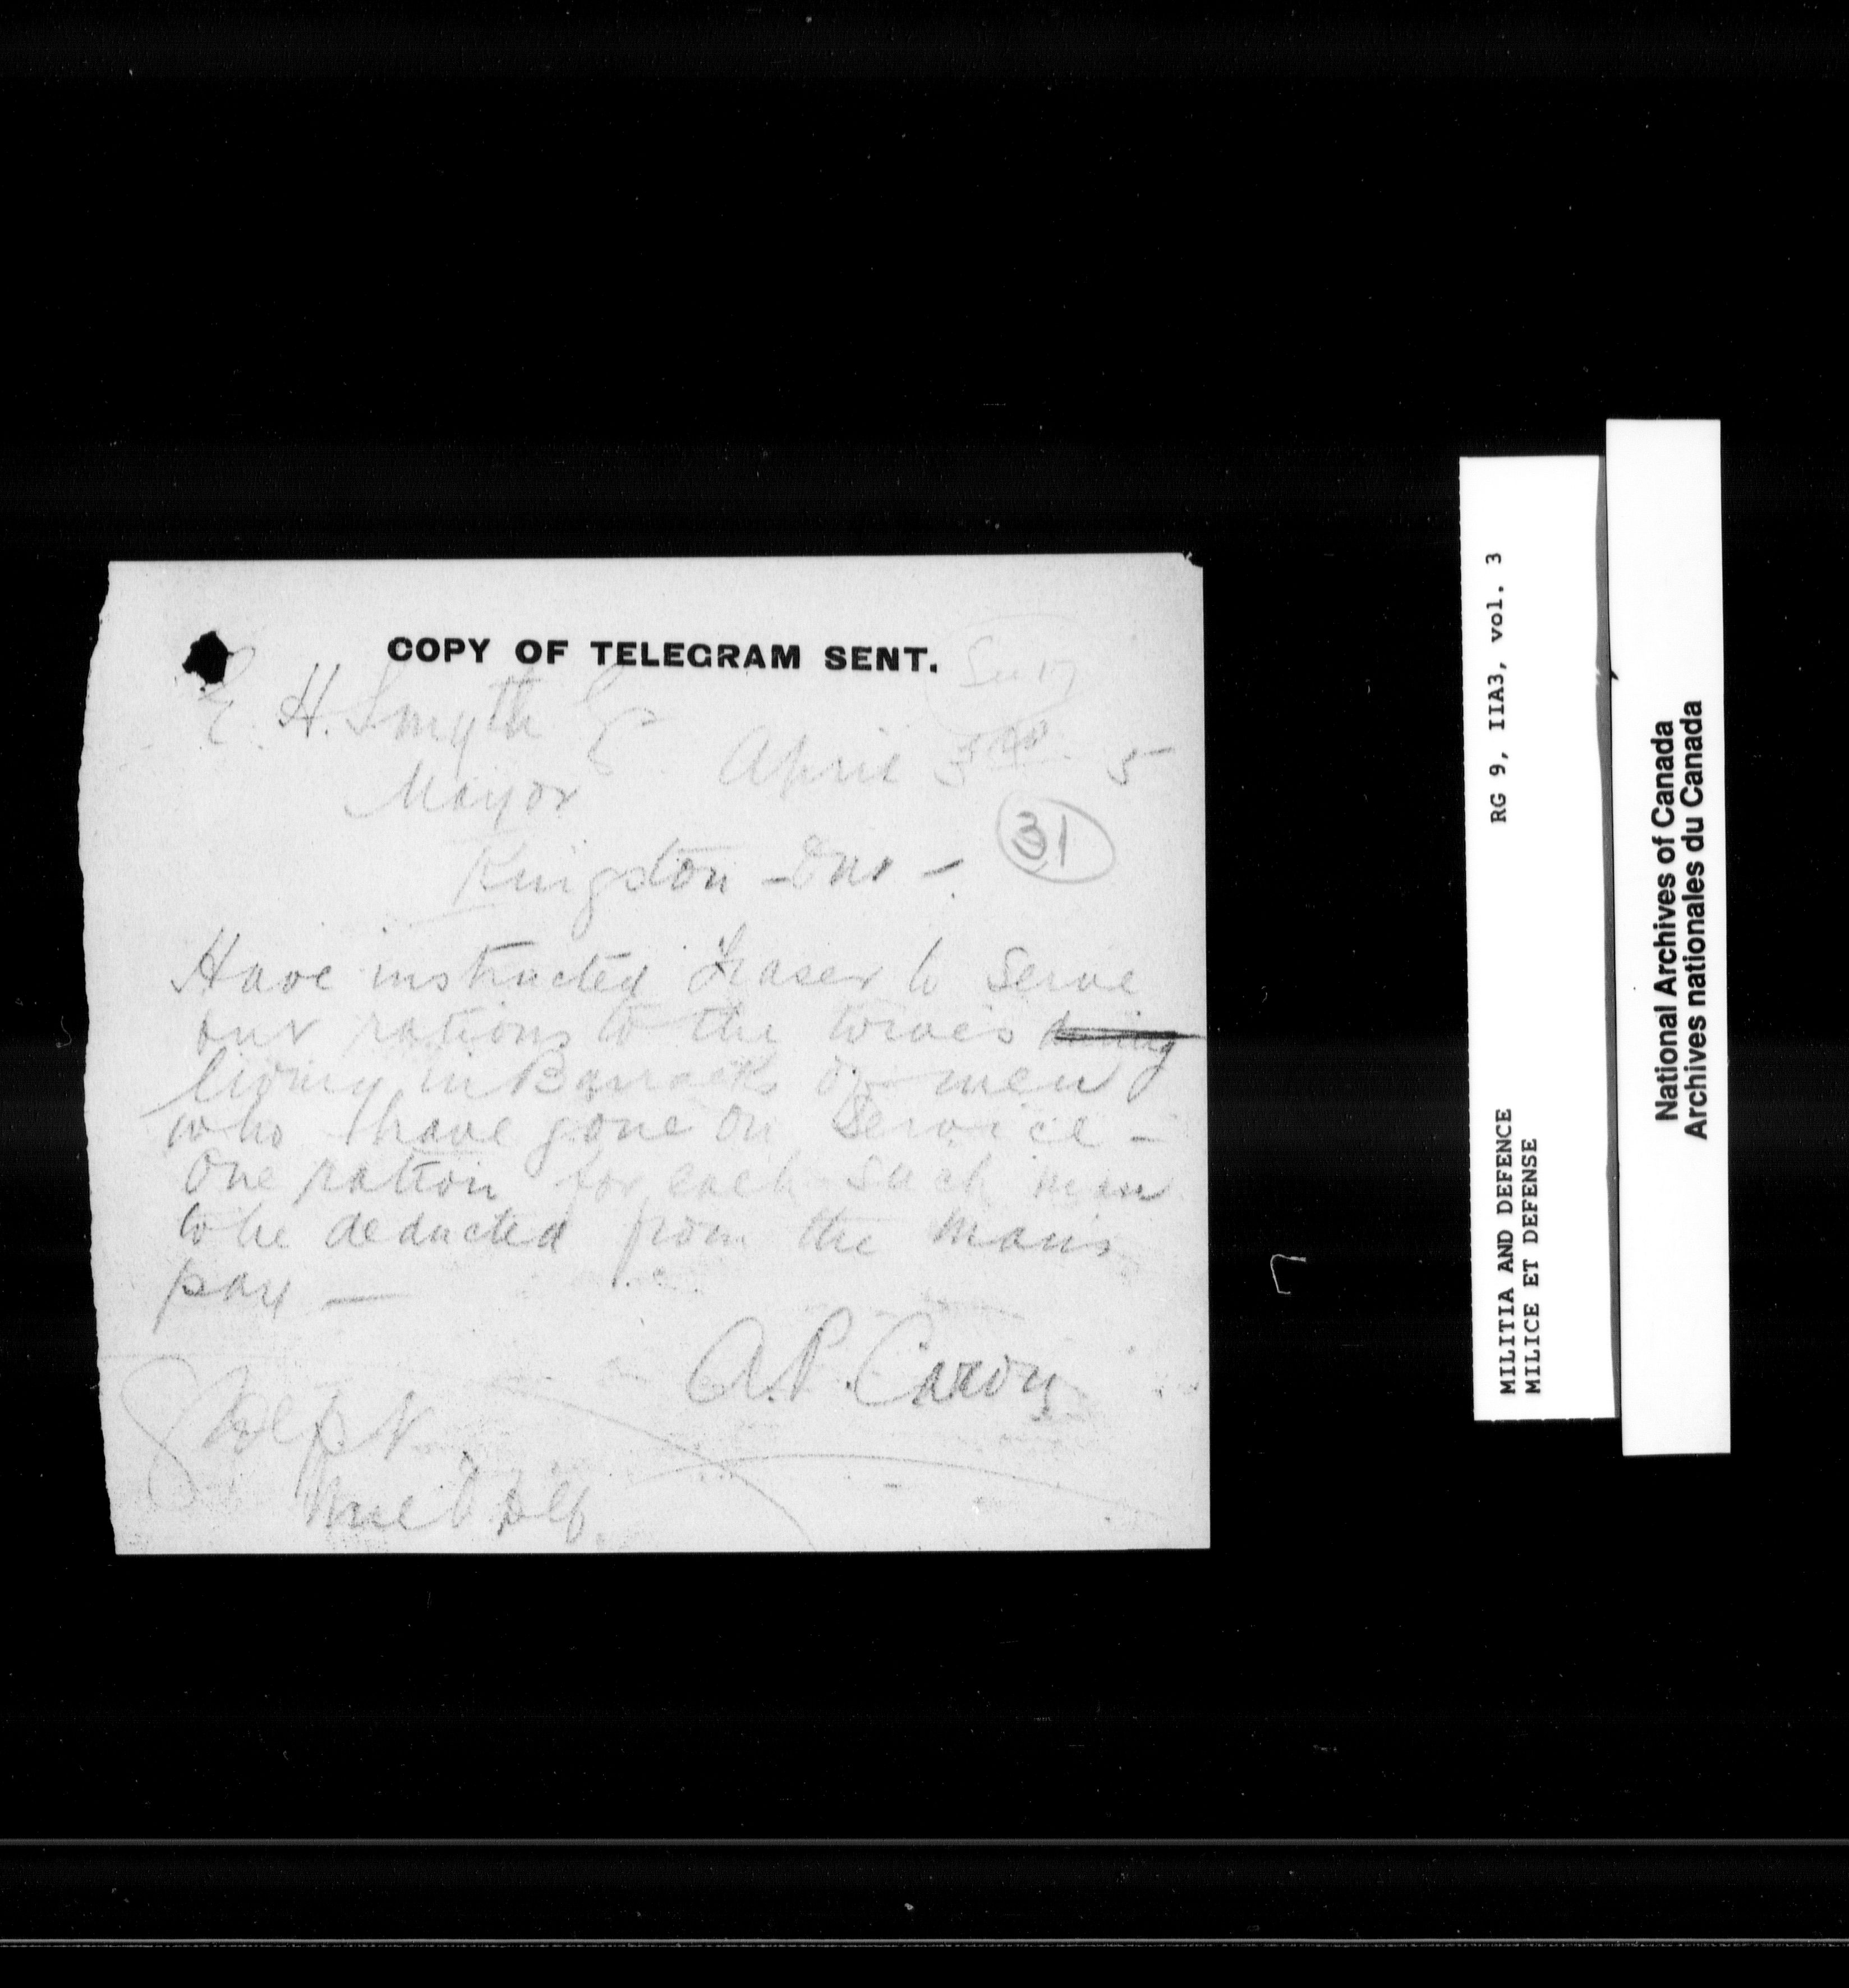 COPY OF TELEGRAM SENT.
E. H. Smyth
Mayor April 5
Kingston - Ont -
31
Have instructed Fraser to serve
out rations to the wives
living in Barracks of men
who have gone on Service -
One ration for each such man
to be deducted from the man's
pay —
A.P. Caron
Dept
Mil & Def.
RG 9, IIA3, vol. 3
MILITIA AND DEFENCE
MILICE ET DEFENSE
National Archives of Canada
Archives nationales du Canada